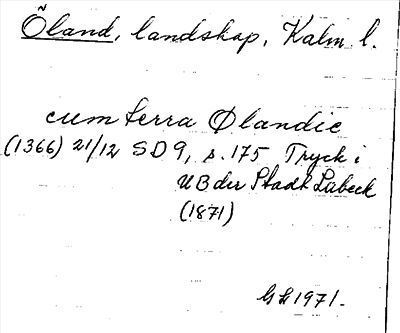 Öland, landskap, Kalm l.
cum terra Ølandie
(1366) 21/12 SD 9, s. 175 Tryck i
UB der Stadt Lübeck
(1871)
GH 1971.